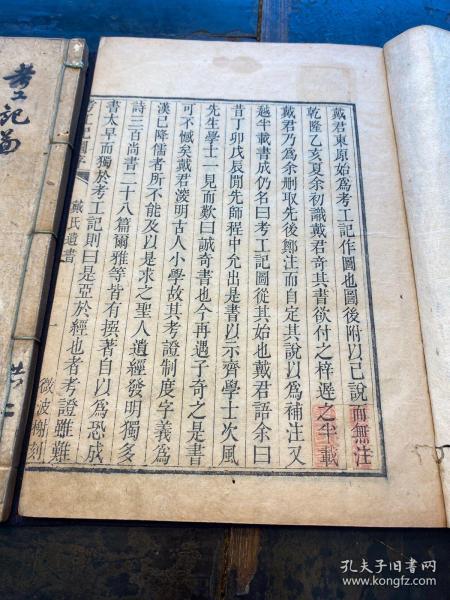 戴君東原始為考工記作圖也圖後附以己說而無注
乾隆乙亥夏余初識戴君奇其書欲付之梓遲之半載
戴君乃為余刪取先後鄭注而自定其說以為補注又
越半載書成仍名曰考工記圖從其始也戴君語余曰
昔丁卯戊辰閒先師程中允出是書以示齊學士次風
先生學士一見而歎曰誠奇書也今再遇子奇之是書
可不憾矣戴君淩明古人小學故其考證制度字義為
漢已降儒者所不能及以是求之聖人遺經發明獨多
詩三百尚書二十八篇爾雅等皆有撰著自以為恐成
書太早而獨於考工記則曰是亞於經也者考證雖難
考工記圖序
戴氏遺書
一
微波榭刻
考工記圖
共二
孔夫子旧书网
www.kongfz.com